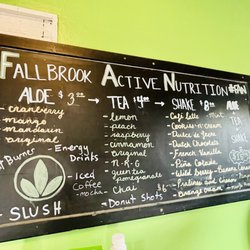 FALLBROOK ACTIVE NUTRITION
ALOE $3.00 → TEA $4.00 → SHAKE $8.00 ALOE
- cranberry
- mango
- mandarin
- original
Fat Burner
Energy Drinks
Iced Coffee
- mocha
SLUSH
- lemon
- peach
- raspberry
- cinnamon
- original
- N-R-G
- guarana
pomegranate
- Chai $6
- Donut Shots
- Café Latte - Mint
- Cookies-n-cream
- Dulce de leche
- Dutch Chocolate
- French Vanilla
- Piña Colada
- Wild Berry - Banana
- Pralines and Cream
- Orange Cream